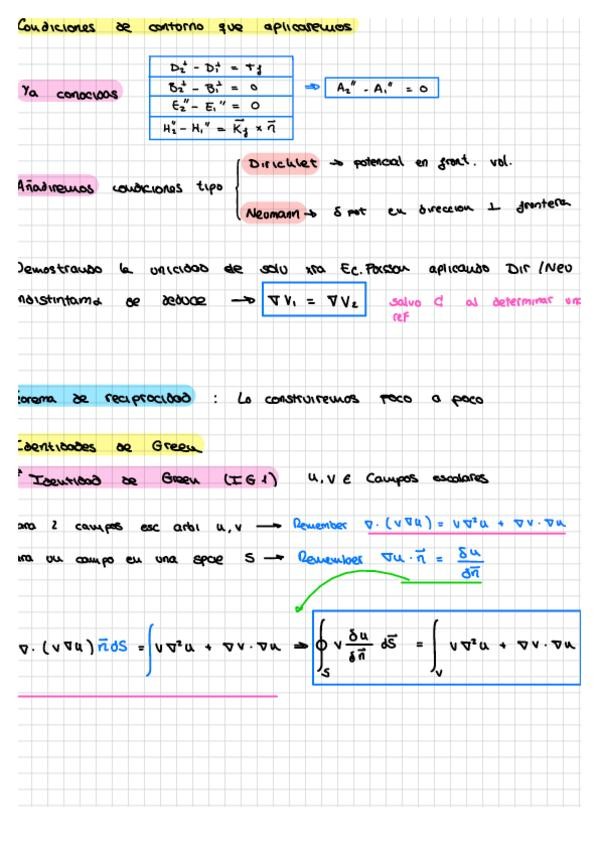 Condiciones de contorno que aplicaremos
Ya conocidas
D₂⊥ - D₁⊥ = σf
B₂⊥ - B₁⊥ = 0 ⇒ A₂" - A₁" = 0
E₂" - E₁" = 0
H₂" - H₁" = K⃗f × n⃗
Añadiremos condiciones tipo
Dirichlet → potencial en front. vol.
Neumann → δ pot en direccion ⊥ frontera
Demostrando la unicidad de solu xra Ec. Poisson aplicando Dir/Neu
indistintamd se deduce → ∇V₁ = ∇V₂ salvo C al determinar una
ref
eorema de reciprocidad : Lo construiremos poco a poco
Identidades de Green
Identidad de Green (IG1) u, v ∈ Campos escalares
ara 2 campos esc arbi u, v → Remember ∇·(v∇u) = v∇²u + ∇v·∇u
ara un campo en una spcie S → Remember ∇u·n⃗ = δu/δn⃗
∇·(v∇u) n⃗dS = ∫ v∇²u + ∇v·∇u ⇒ ∮S v δu/δn⃗ dS⃗ = ∫V v∇²u + ∇v·∇u